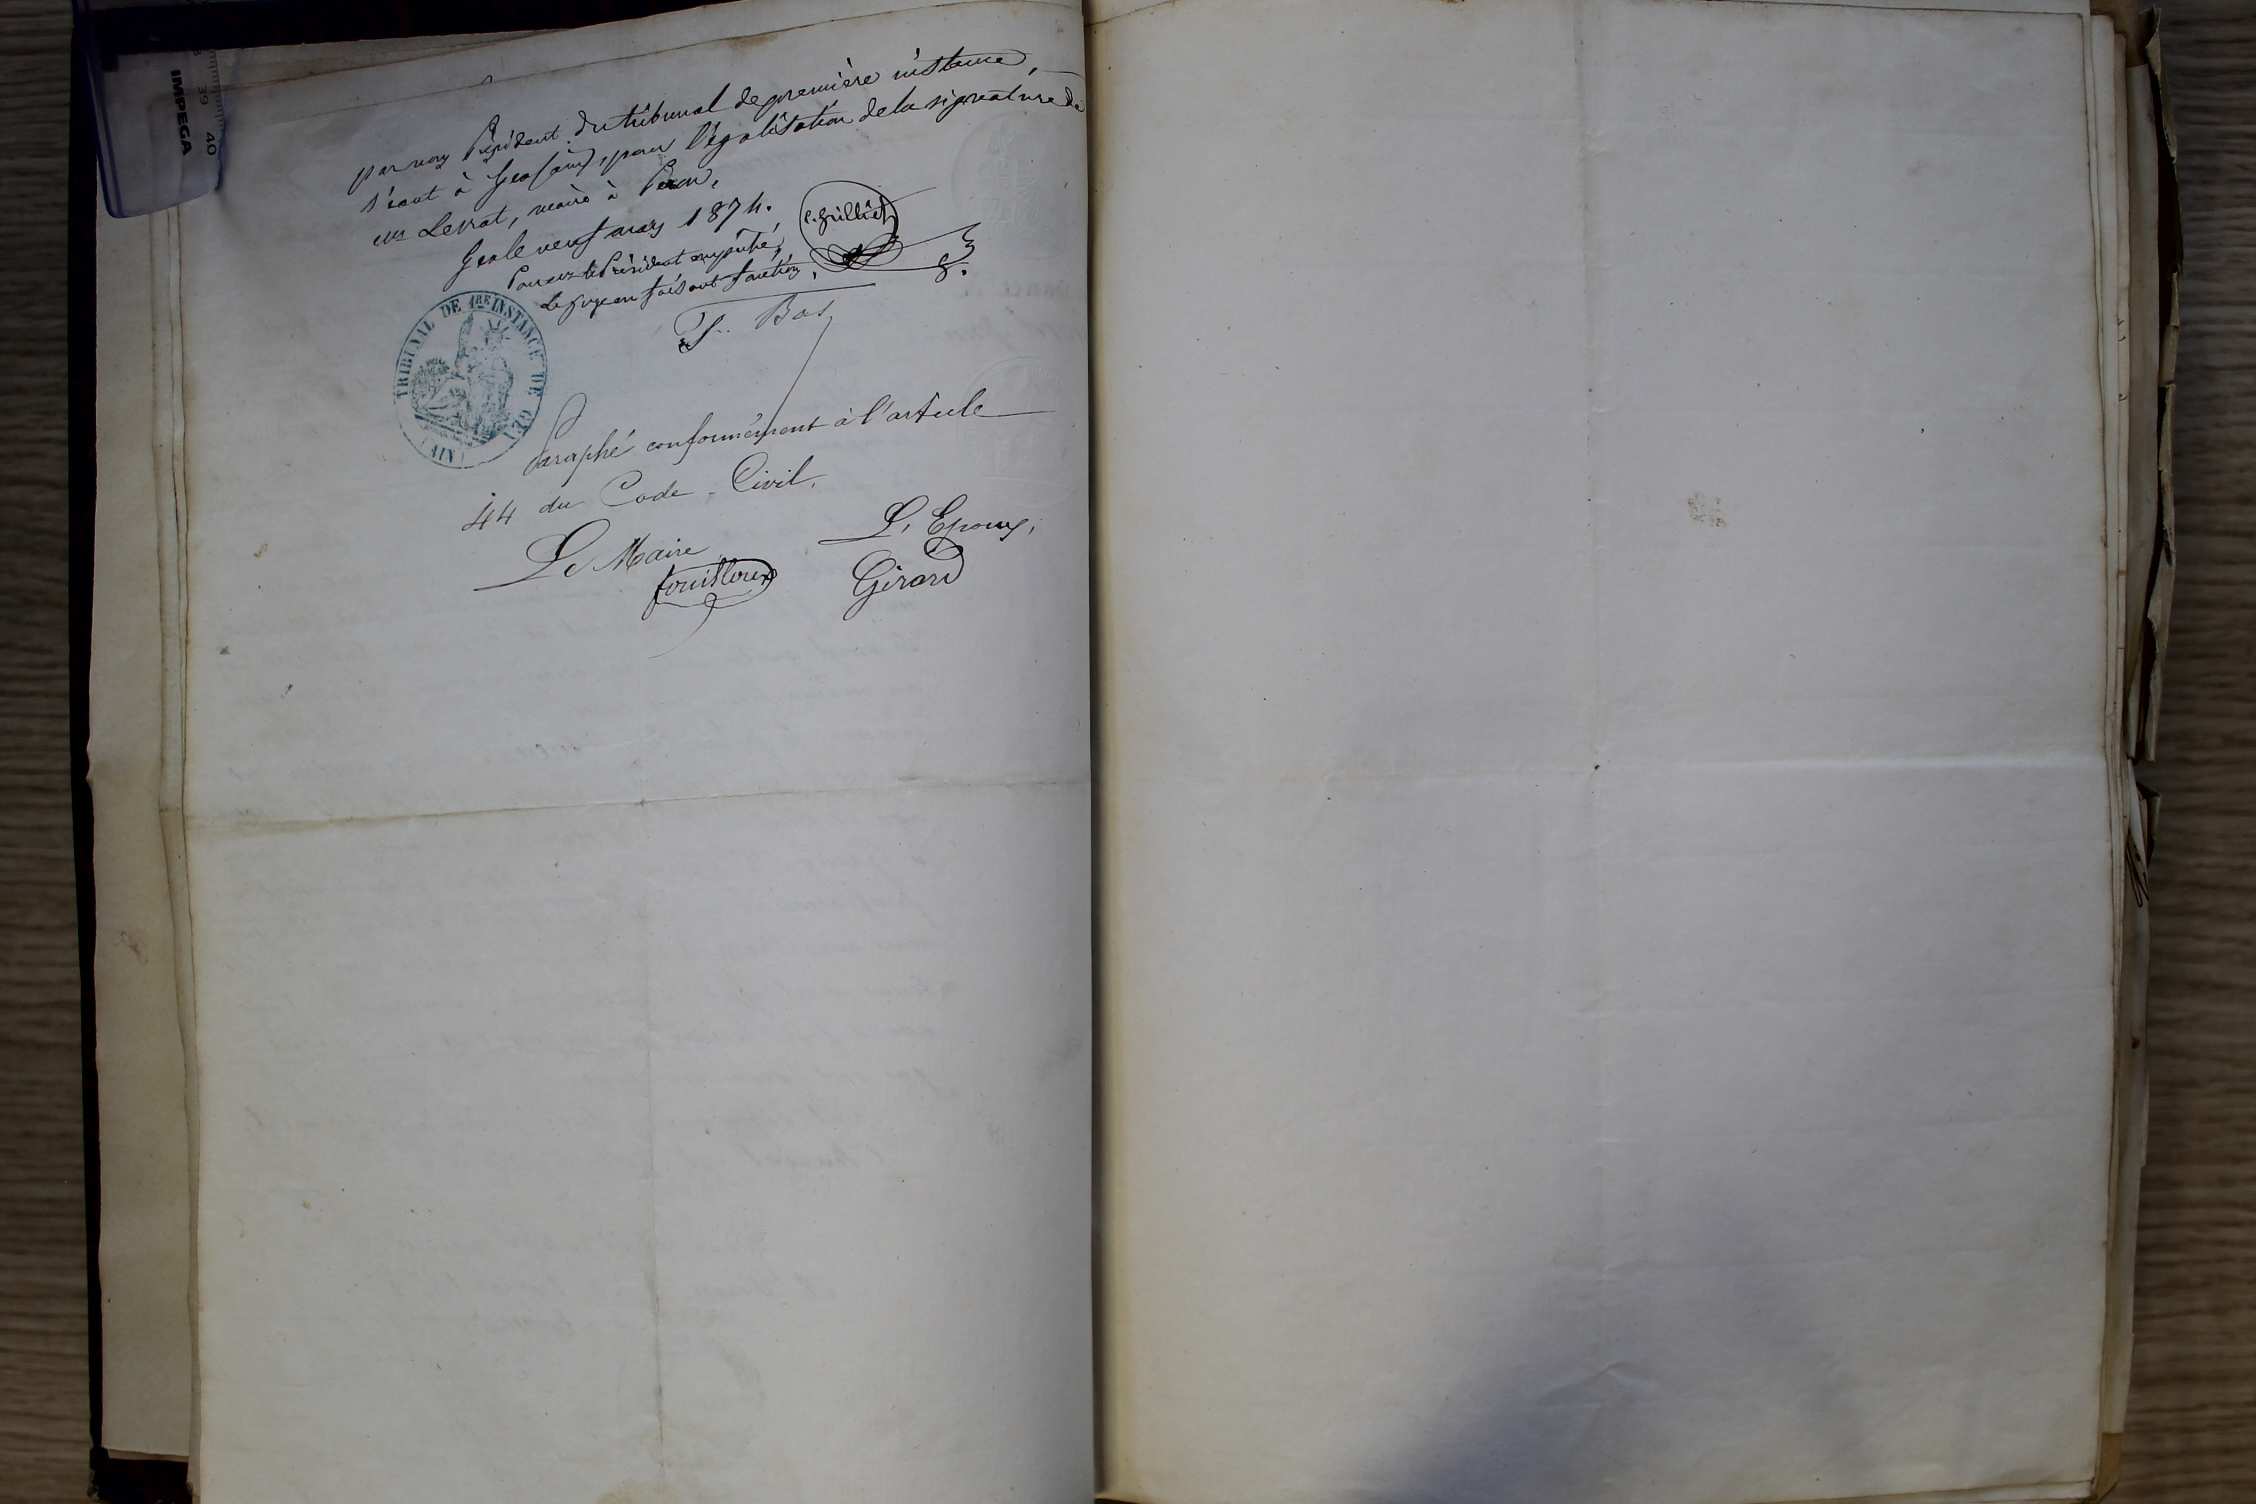 par nous Président du tribunal de première instance,
séant à Gex (ain), pour légalisation de la signature de
Mr Levrat, maire à Péron,
Gex le neuf mars 1874.
Pour le Président empêché,
Le Juge en faisant fonction,
C. Grilliet
TRIBUNAL DE 1RE INSTANCE DE GEX
(AIN)
Bas
Paraphé conformément à l'article
44 du Code Civil.
Le Maire
L'Epoux,
fouilloux
Girard
IMPEGA
39 40